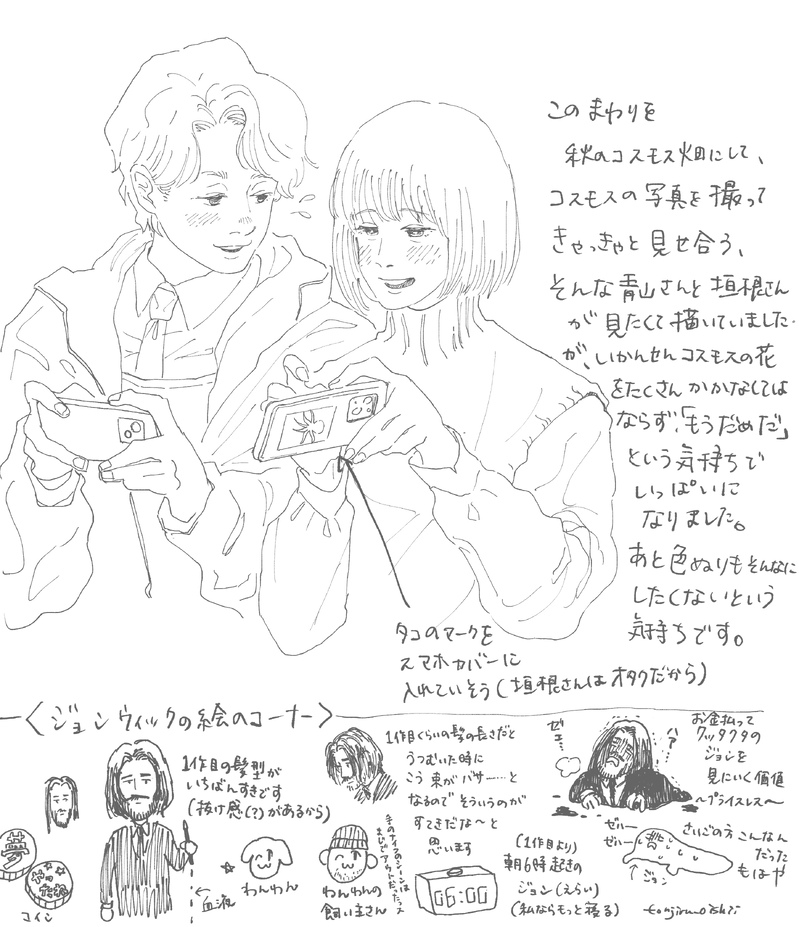 このまわりを
秋のコスモス畑にして、
コスモスの写真を撮って
きゃっきゃと見せ合う、
そんな青山さんと垣根さん
が見たくて描いていました.
が、いかんせんコスモスの花
をたくさんかかなしては
ならず、「もうだめだ」
という気持ちで
いっぱいに
なりました。
あと色ぬりもそんなに
したくないという
気持ちです。
タコのマークを
スマホカバーに
入れていそう(垣根さんはオタクだから)
<ジョン ウィックの絵のコーナー>
1作目の髪型が
いちばんすきです
(抜け感(?)があるから)
コイン
血液
わんわん
わんわんの
飼い主さん
1作目くらいの髪の長さだと
うつむいた時に
こう束がバサー…と
なるので そういうのが
すてきだな〜と
思います
06:00
(1作目より)
朝6時起きの
ジョン(えらい)
(私ならもっと寝る)
ゼエ…
ハァ…
お金払って
クッタクタの
ジョンを
見にいく価値
〜プライスレス〜
ゼハー
ゼハー
ジョン
さいごの方こんなん
だった
もはや